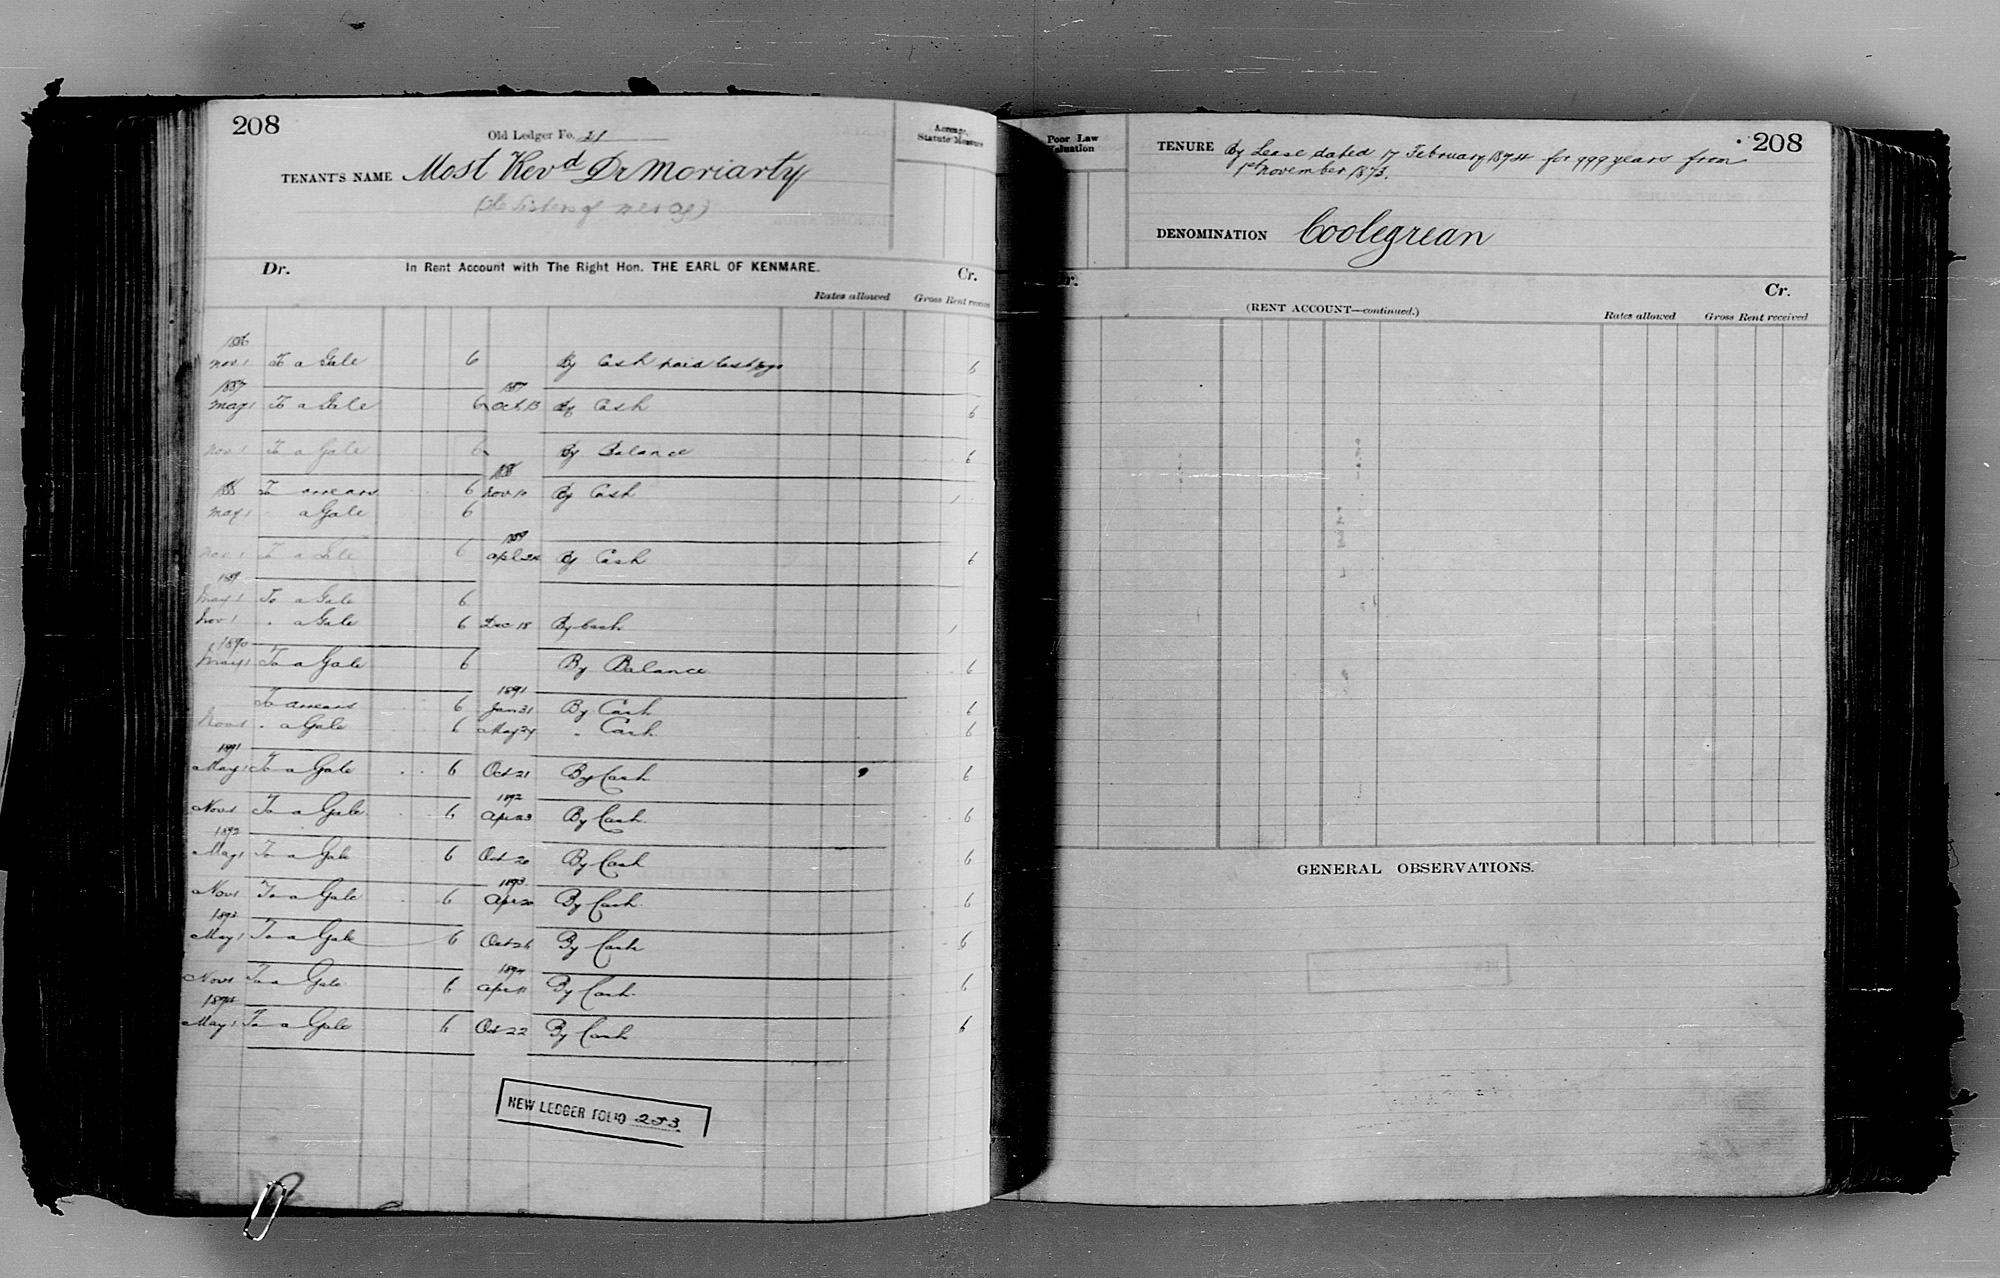 208
Old Ledger Fo. 21
TENANT'S NAME Most Revd Dr Moriarty
(The Sisters of Mercy)
Acreage, Statute Measure
Dr. In Rent Account with The Right Hon. THE EARL OF KENMARE. Cr.
Rates allowed Gross Rent received
1886
Nov 1 To a Gale 6 By Cash paid 6
1887 1887
May 1 To a Gale 6 Oct 13 By Cash 6
Nov 1 To a Gale 6 By Balance 6
1888
1888 To arrears 6 Nov 10 By Cash 1
May 1 a Gale 6
1889
Nov 1 To a Gale 6 Apl 24 By Cash 6
1889
May 1 To a Gale 6
Nov 1 . a Gale 6 Dec 18 By Cash 1
1890
May 1 To a Gale 6 By Balance 6
1891
To arrears 6 Jan 31 By Cash 6
Nov 1 . a Gale 6 May 27 . Cash 6
1891
May 1 To a Gale 6 Oct 21 By Cash 6
1892
Nov 1 To a Gale 6 Apr 23 By Cash 6
1892
May 1 To a Gale 6 Oct 20 By Cash 6
1893
Nov 1 To a Gale 6 Apr 20 By Cash 6
1893
May 1 To a Gale 6 Oct 26 By Cash 6
1894
Nov 1 To a Gale 6 Apr 11 By Cash 6
1894
May 1 To a Gale 6 Oct 22 By Cash 6
NEW LEDGER FOLIO 253.
Poor Law Valuation
TENURE By Lease dated 17 February 1874 for 999 years from 208
1st November 1873.
DENOMINATION Coolegrean
Cr.
(RENT ACCOUNT—continued.)
Rates allowed Gross Rent received
GENERAL OBSERVATIONS.